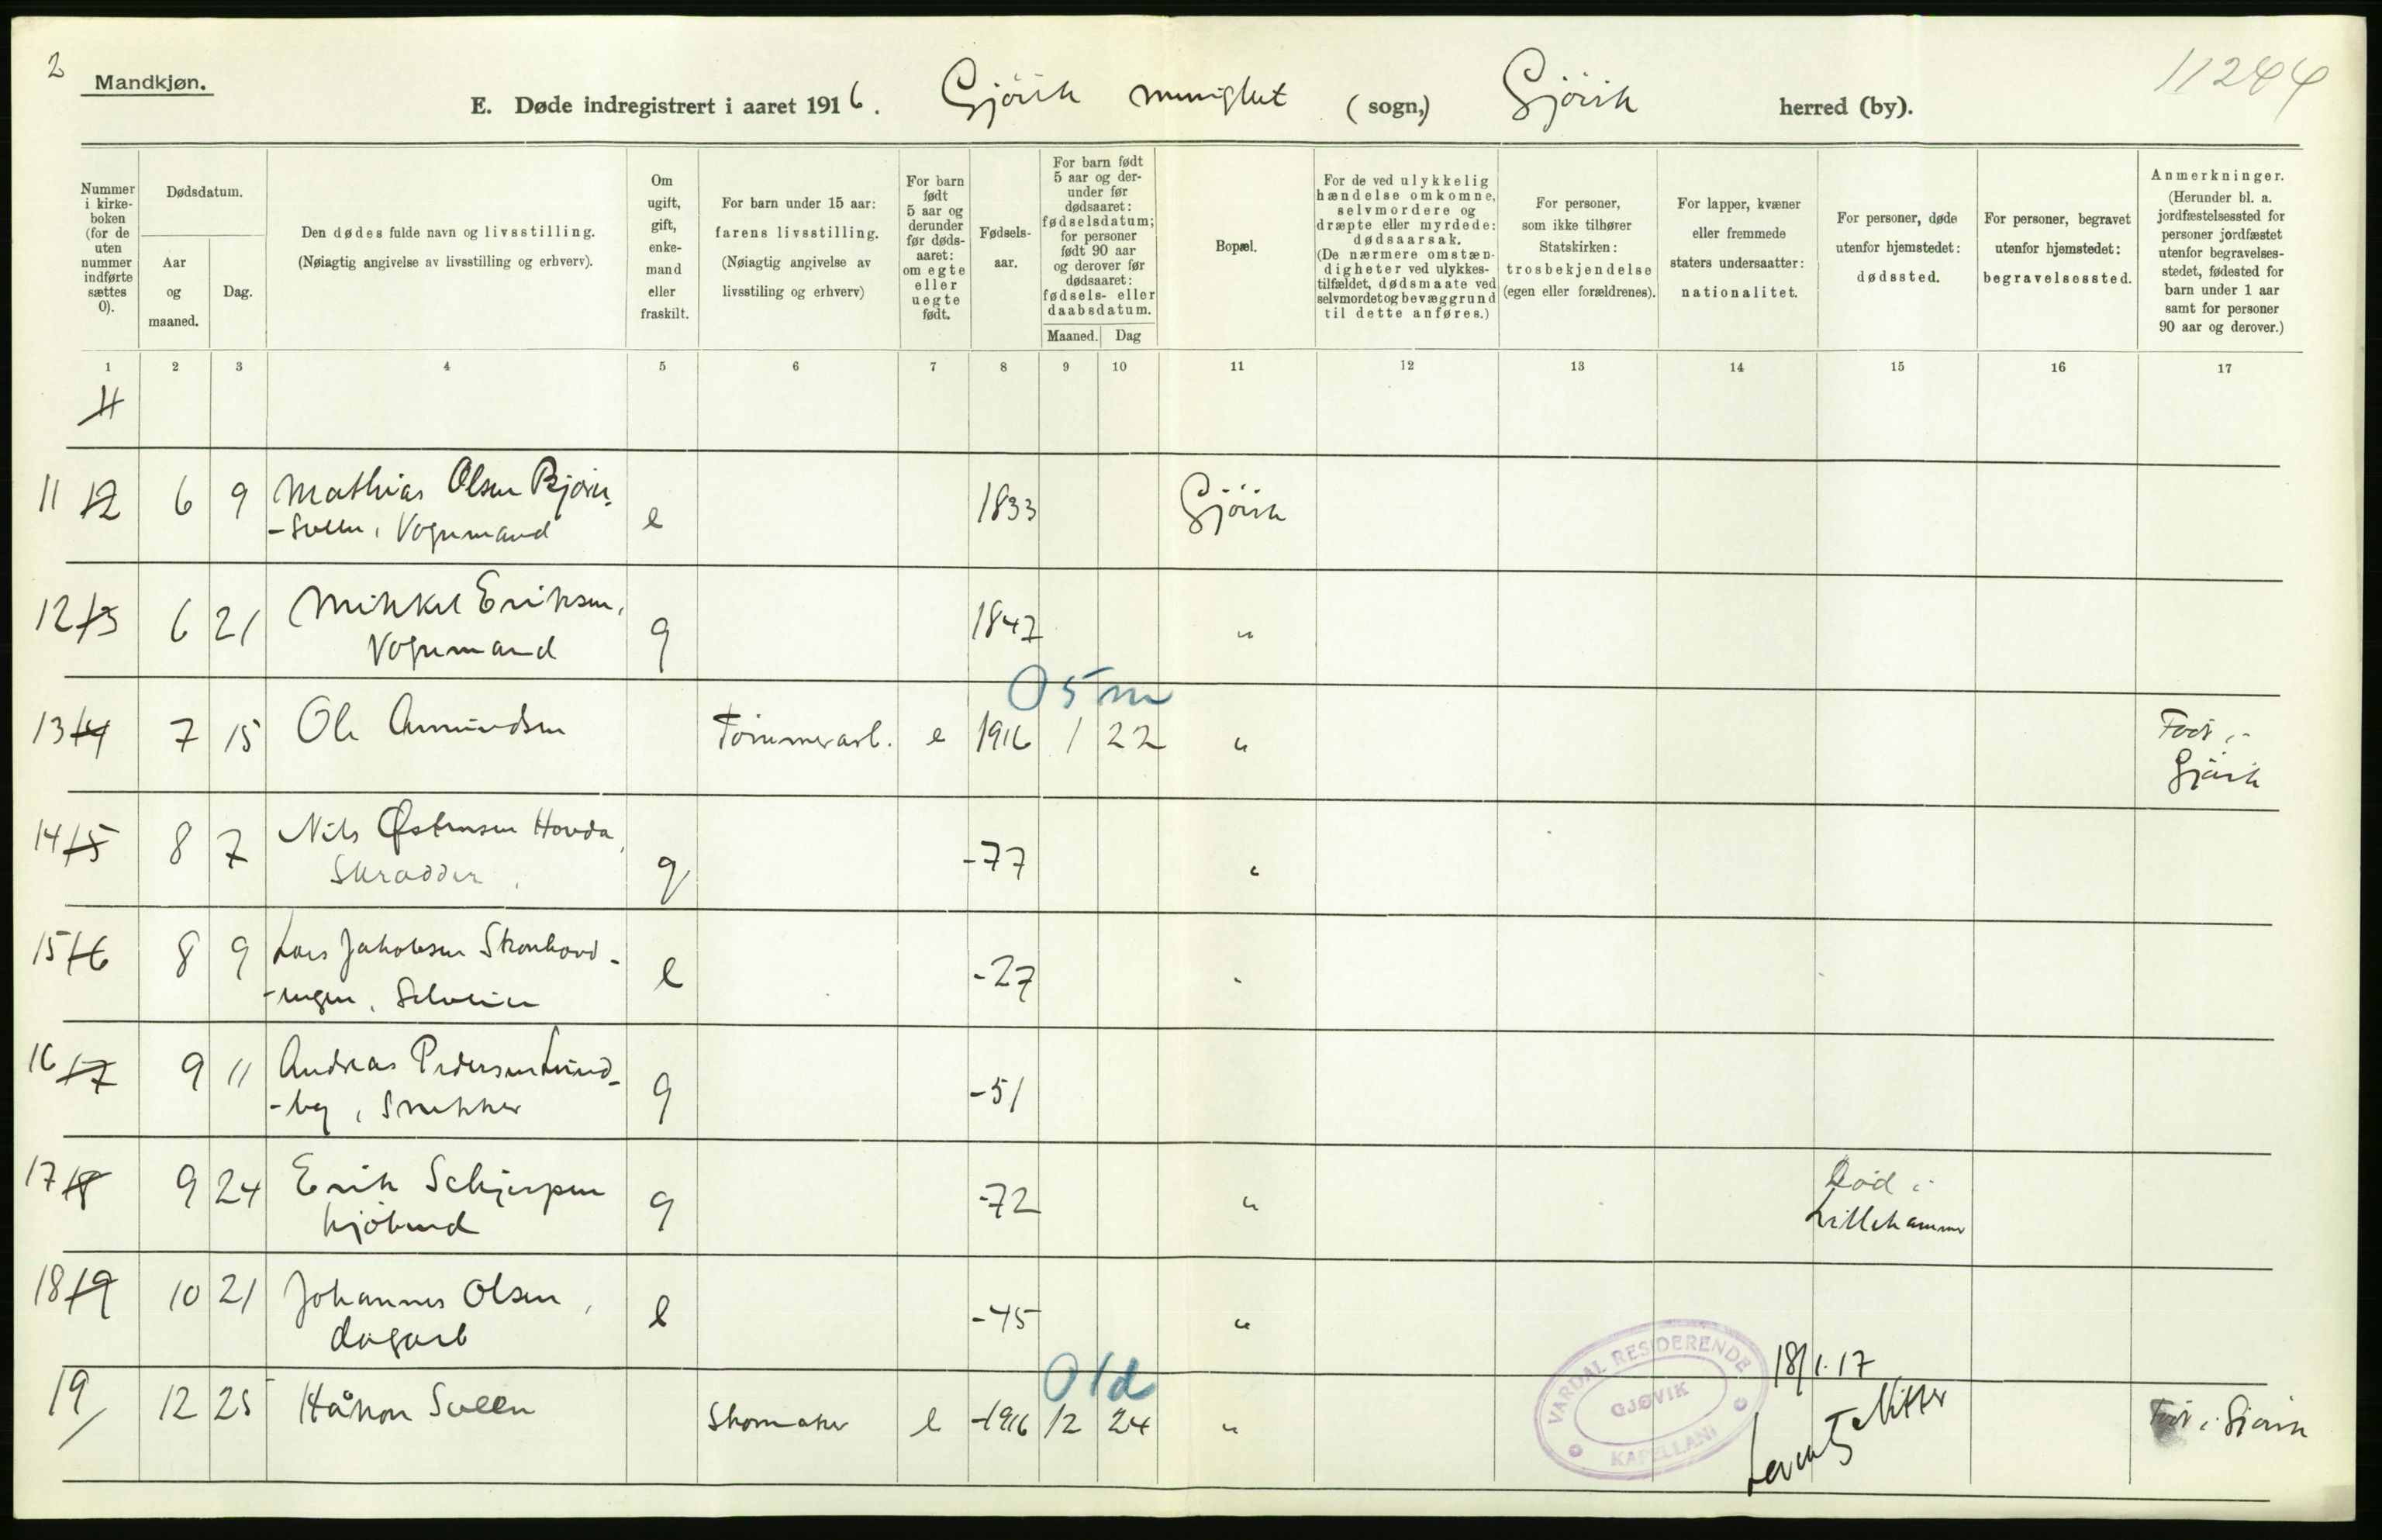 2
Mandkjøn.
E. Døde indregistrert i aaret 1916. Gjövik menighet (sogn,) Gjövik herred (by).
11244
Nummer i kirke-boken (for de uten nummer indførte sættes 0).
Dødsdatum.
Aar og maaned.
Dag.
Den dødes fulde navn og livsstilling.
(Nøiagtig angivelse av livsstilling og erhverv).
Om ugift, gift, enkemand eller fraskilt.
For barn under 15 aar: farens livsstilling.
(Nøiagtig angivelse av livsstiling og erhverv)
For barn født 5 aar og derunder før døds-aaret: om egte eller uegte født.
Fødsels-aar.
For barn født 5 aar og der-under før dødsaaret: fødselsdatum; for personer født 90 aar og derover før dødsaaret: fødsels- eller daabsdatum.
Maaned. Dag
Bopæl.
For de ved ulykkelig hændelse omkomne, selvmordere og dræpte eller myrdede: dødsaarsak.
(De nærmere omstæn-digheter ved ulykkes-tilfældet, dødsmaate ved selvmordet og bevæggrund til dette anføres.)
For personer, som ikke tilhører Statskirken: trosbekjendelse (egen eller forældrenes).
For lapper, kvæner eller fremmede staters undersaatter: nationalitet.
For personer, døde utenfor hjemstedet: dødssted.
For personer, begravet utenfor hjemstedet: begravelsessted.
Anmerkninger.
(Herunder bl. a. jordfæstelsessted for personer jordfæstet utenfor begravelses-stedet, fødested for barn under 1 aar samt for personer 90 aar og derover.)
1 2 3 4 5 6 7 8 9 10 11 12 13 14 15 16 17
11
11 12 6 9 Mathias Olsen Björn-
-sveen, Vognmand e 1833 Gjövik
12 13 6 21 Mikkel Eriksen,
Vognmand g 1847 "
0 5 m
13 14 7 15 Ole Amundsen Tömmerarb. e 1916 1 22 " Född i
Gjövik
14 15 8 7 Nils Østensen Hovda,
Skrædder g -77 "
15 16 8 9 Lars Jakobsen
e -27 "
16 17 9 11 Andreas Pedersen Lund-
-by, Snekker g -51
17 18 9 24 Erik Schjerpen
kjöbmd g -72 " Död i
Lillehammer
18 19 10 21 Johannes Olsen,
dagarb e -45 "
0 1 d
19 12 25 Håkon Sveen Skomaker e -1916 12 24 " Född i Gjövik
VARDAL RESIDERENDE
GJØVIK
KAPELLANI
18/1.17